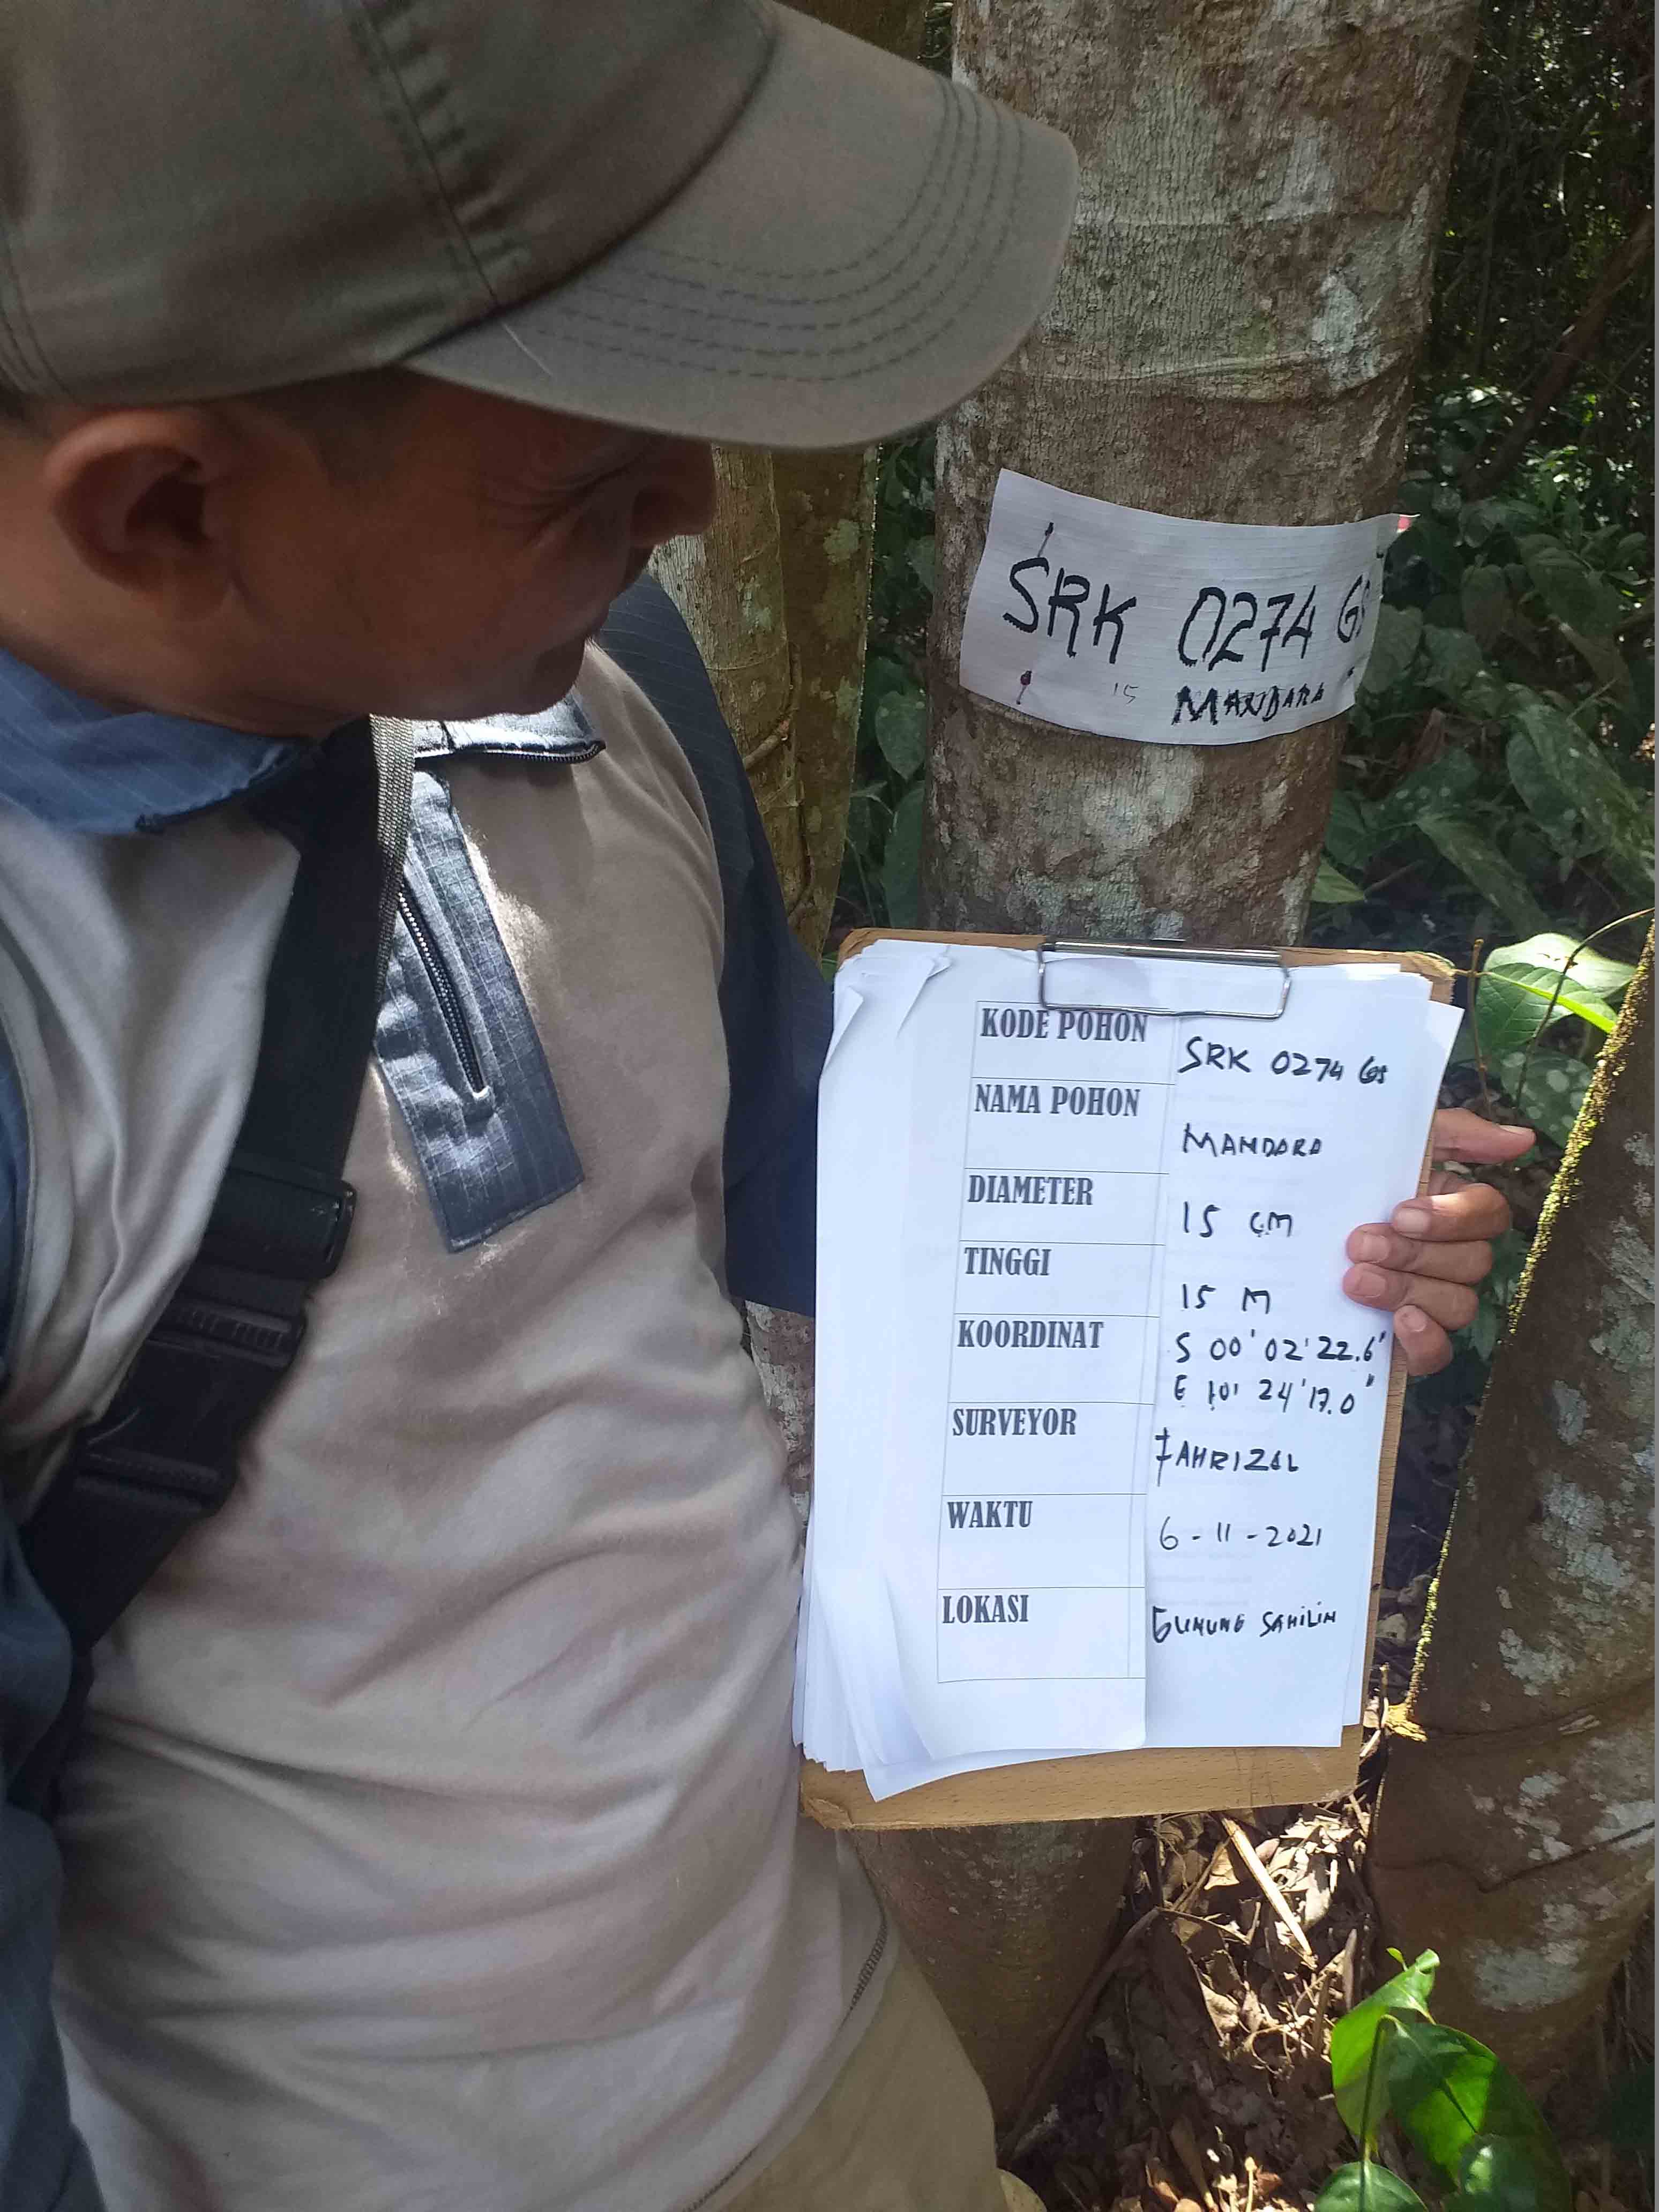 SRK 0274 GS
15 MANDARA
KODE POHON SRK 0274 GS
NAMA POHON MANDARA
DIAMETER 15 CM
TINGGI 15 M
KOORDINAT S 00' 02' 22.6"
E 101 24' 17.0"
SURVEYOR FAHRIZAL
WAKTU 6-11-2021
LOKASI GUNUNG SAHILIN